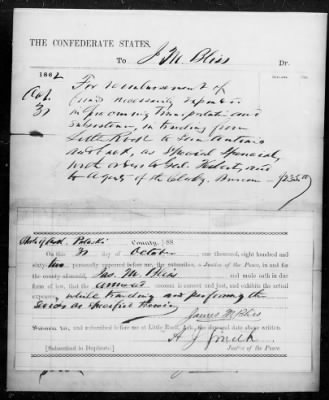 THE CONFEDERATE STATES,
To J. M. Bliss Dr.
1862
Oct. For reimbursement of
31 funds necessarily expended
in procuring transportation and
subsistence, in traveling from
Little Rock to
and back, as Special
with orders to Genl. and
to Agents of the Clothg. Bureau
State of Ark. Pulaski County, SS.
On this 31 day of October one thousand, eight hundred and
sixty two personally appeared before me, the subscriber, a Justice of the Peace, in and for
the county aforesaid, Jas. M. Bliss and made oath in due
form of law, that the amount account is correct and just, and exhibits the actual
expenses while traveling and performing the
James M Bliss
Sworn to, and subscribed before me at Little Rock, Ark. the day and date above written.
Justice of the Peace.
[Subscribed in Duplicate]